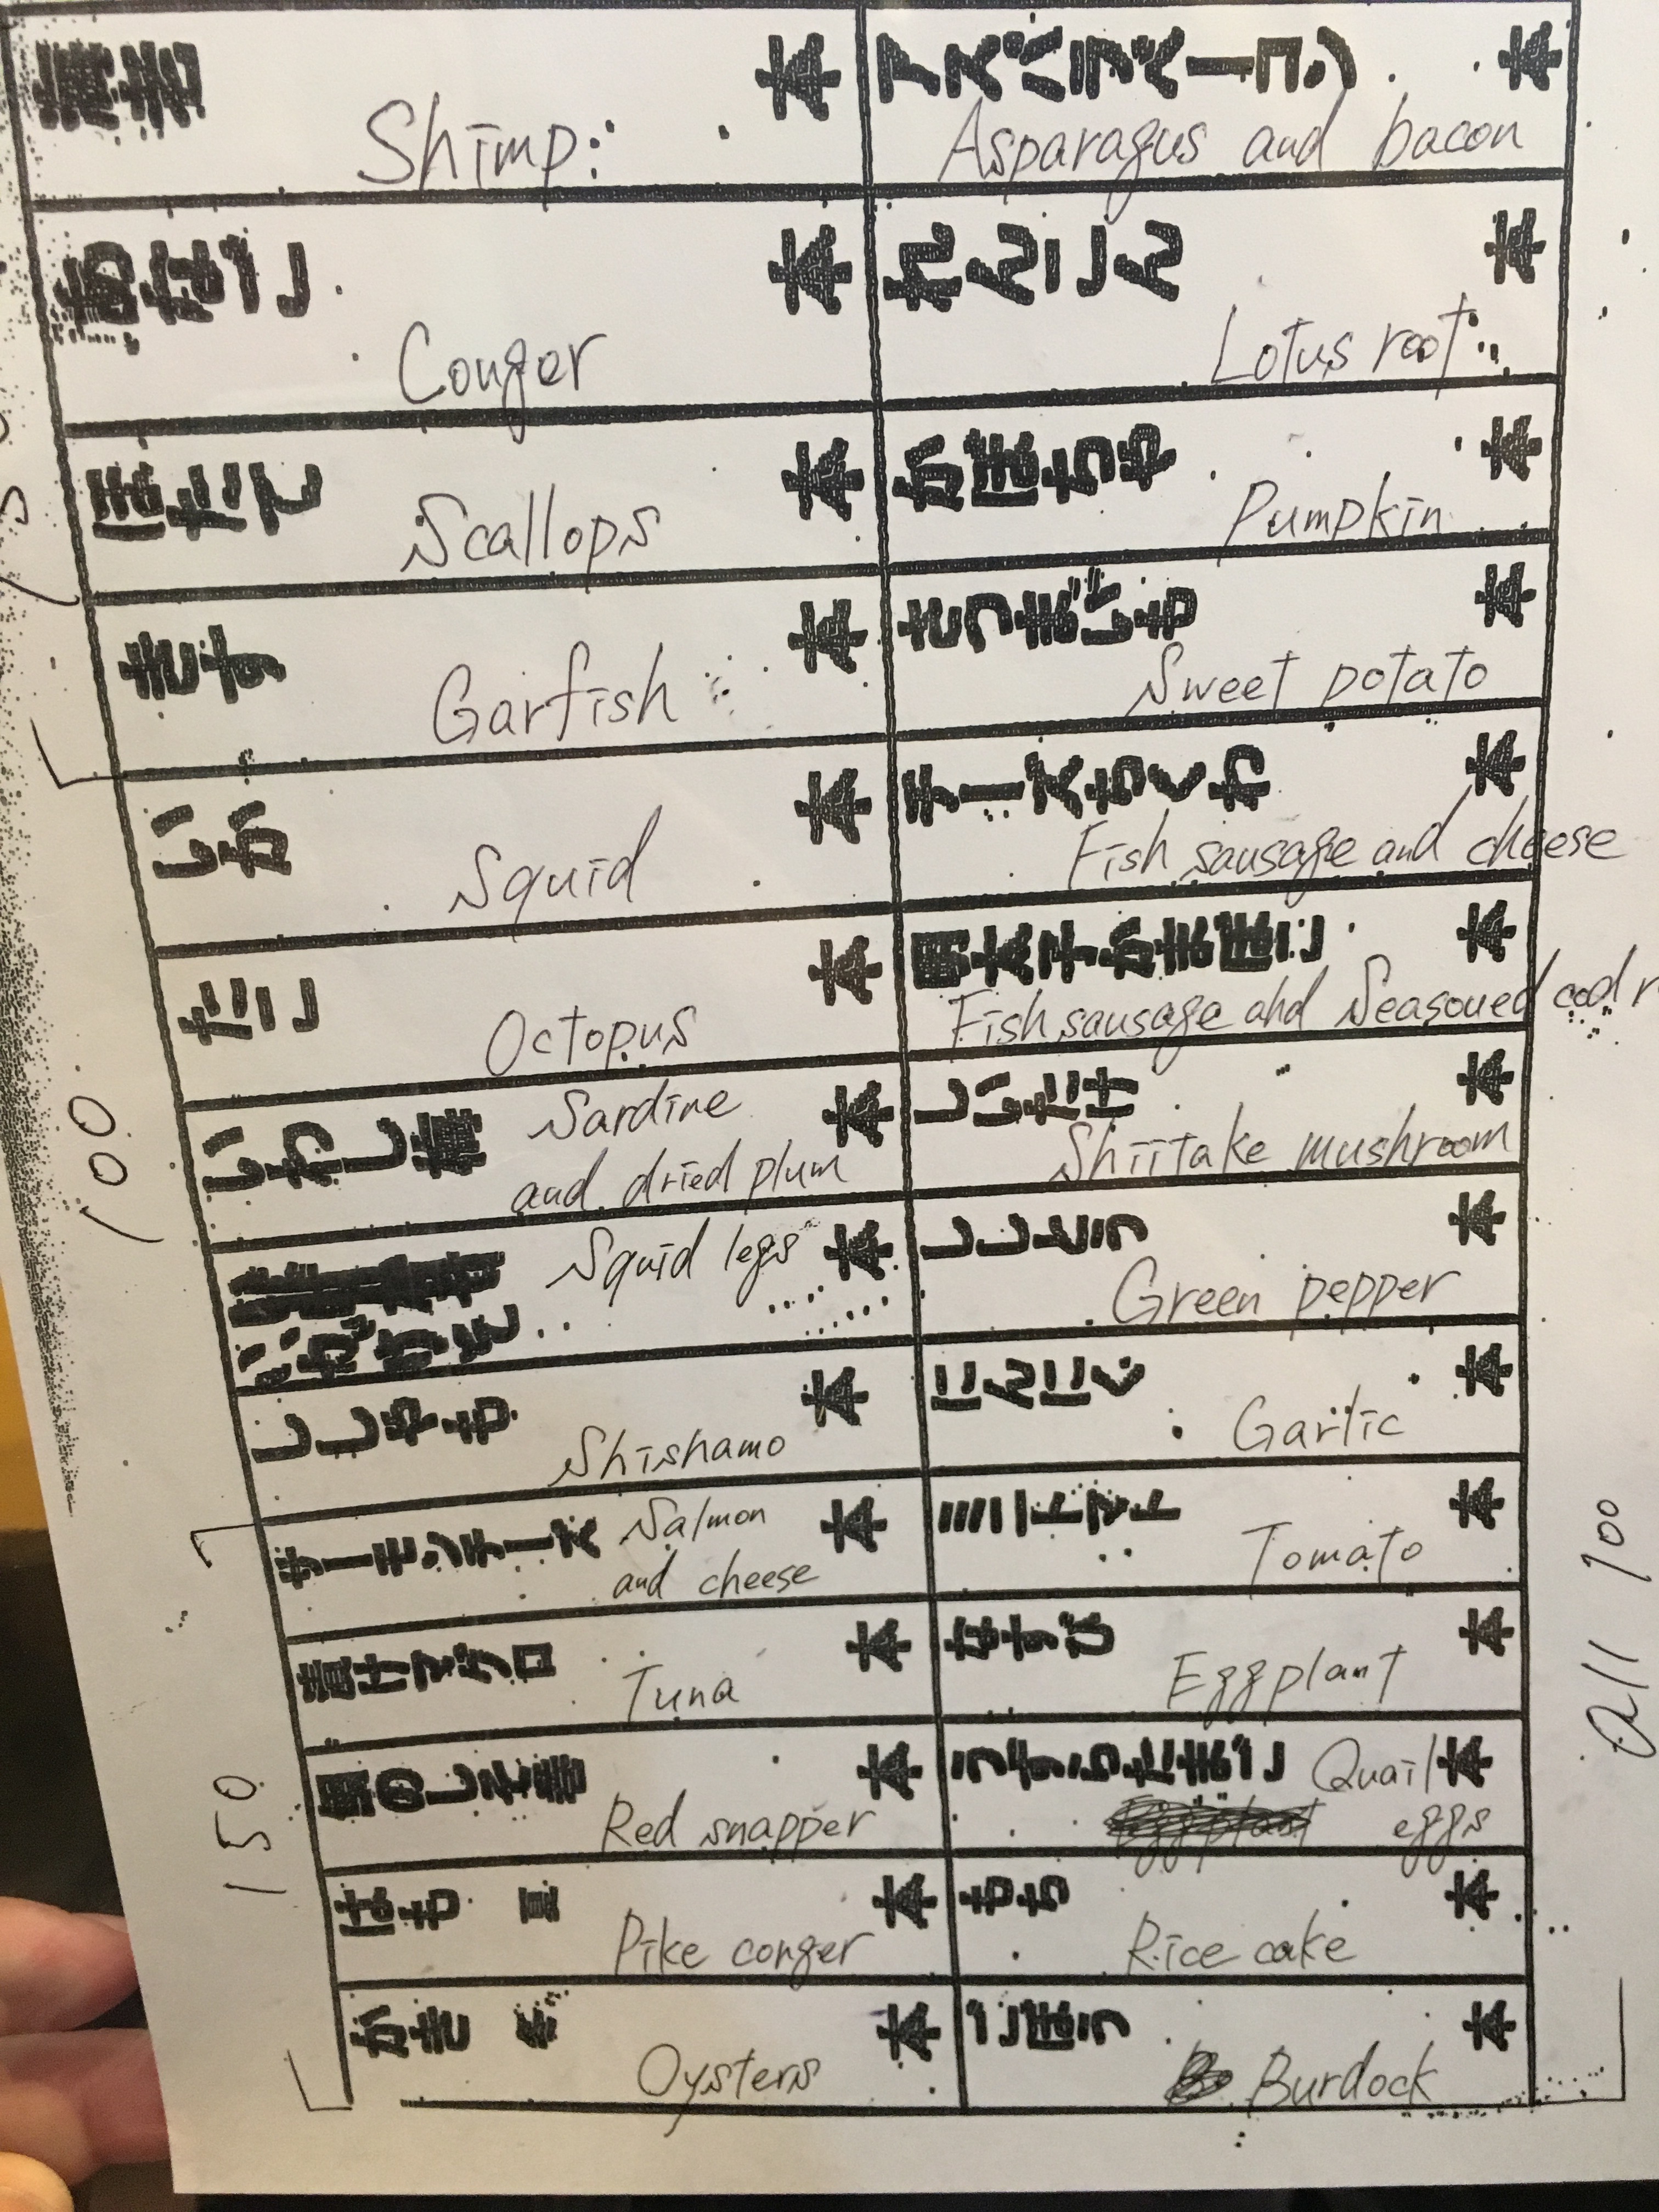 本
Shimp
アスパラベーコン 本
Asparagus and bacon
あなご 本
Conger
れんこん 本
Lotus root
ほたて 本
Scallops
かぼちゃ 本
Pumpkin
きす 本
Garfish
さつまいも 本
Sweet potato
いか 本
Squid
チーズちくわ 本
Fish sausage and cheese
たこ 本
Octopus
明太子かまぼこ 本
Fish sausage and Seasoned cod r
いわし梅 本
Sardine
and dried plum
しいたけ 本
Shiitake mushroom
Squid legs 本
ししとう 本
Green pepper
ししゃも 本
Shishamo
にんにく 本
Garlic
サーモンチーズ 本
Salmon
and cheese
ミニトマト 本
Tomato
マグロ 本
Tuna
なす 本
Eggplant
本
Red snapper
うずらたまご 本
Quail
eggs
はも 本
Pike conger
もち 本
Rice cake
かき 本
Oysters
ごぼう 本
Burdock
100
150
all 100